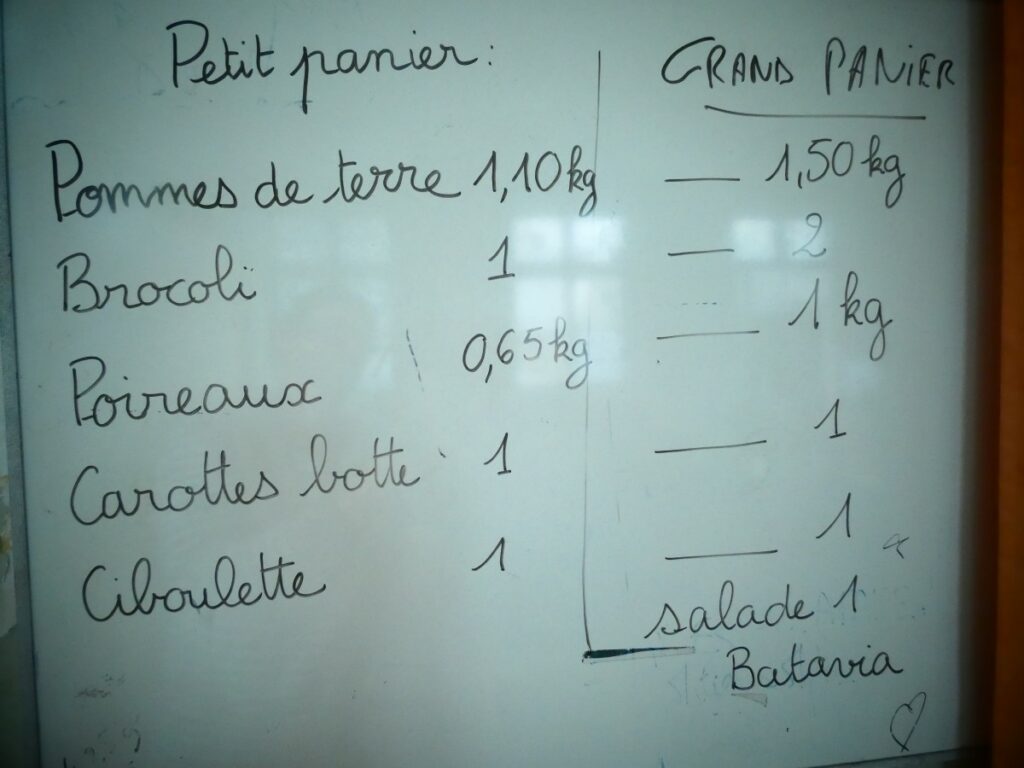 Petit panier : GRAND PANIER
Pommes de terre 1,10 kg — 1,50 kg
Brocoli 1 — 2
Poireaux 0,65 kg — 1 kg
Carottes botte 1 — 1
Ciboulette 1 — 1
salade 1
Batavia